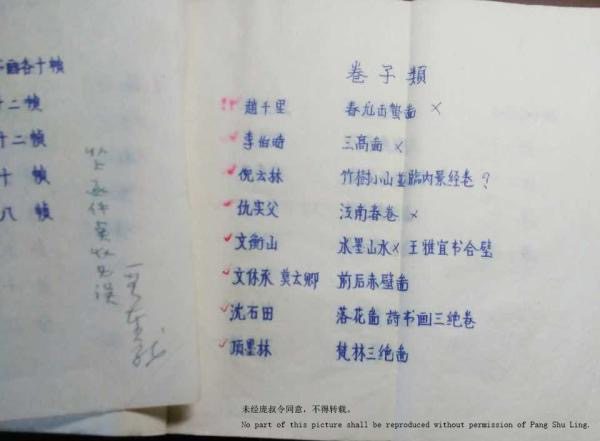 册各十帧
十二帧
十二帧
十 帧
八 帧
以上 件 收 误
卷子類
趙千里 春龙出蛰啚 ×
李伯時 三髙啚 ×
倪云林 竹樹小山並臨内景经卷 ?
仇实父 江南春卷 ×
文衡山 水墨山水× 王雅宜书合璧
文休承 莫云卿 前后赤壁啚
沈石田 落花啚 詩书画三绝卷
项墨林 梵林三绝啚
未经庞叔令同意，不得转载。
No part of this picture shall be reproduced without permission of Pang Shu Ling.